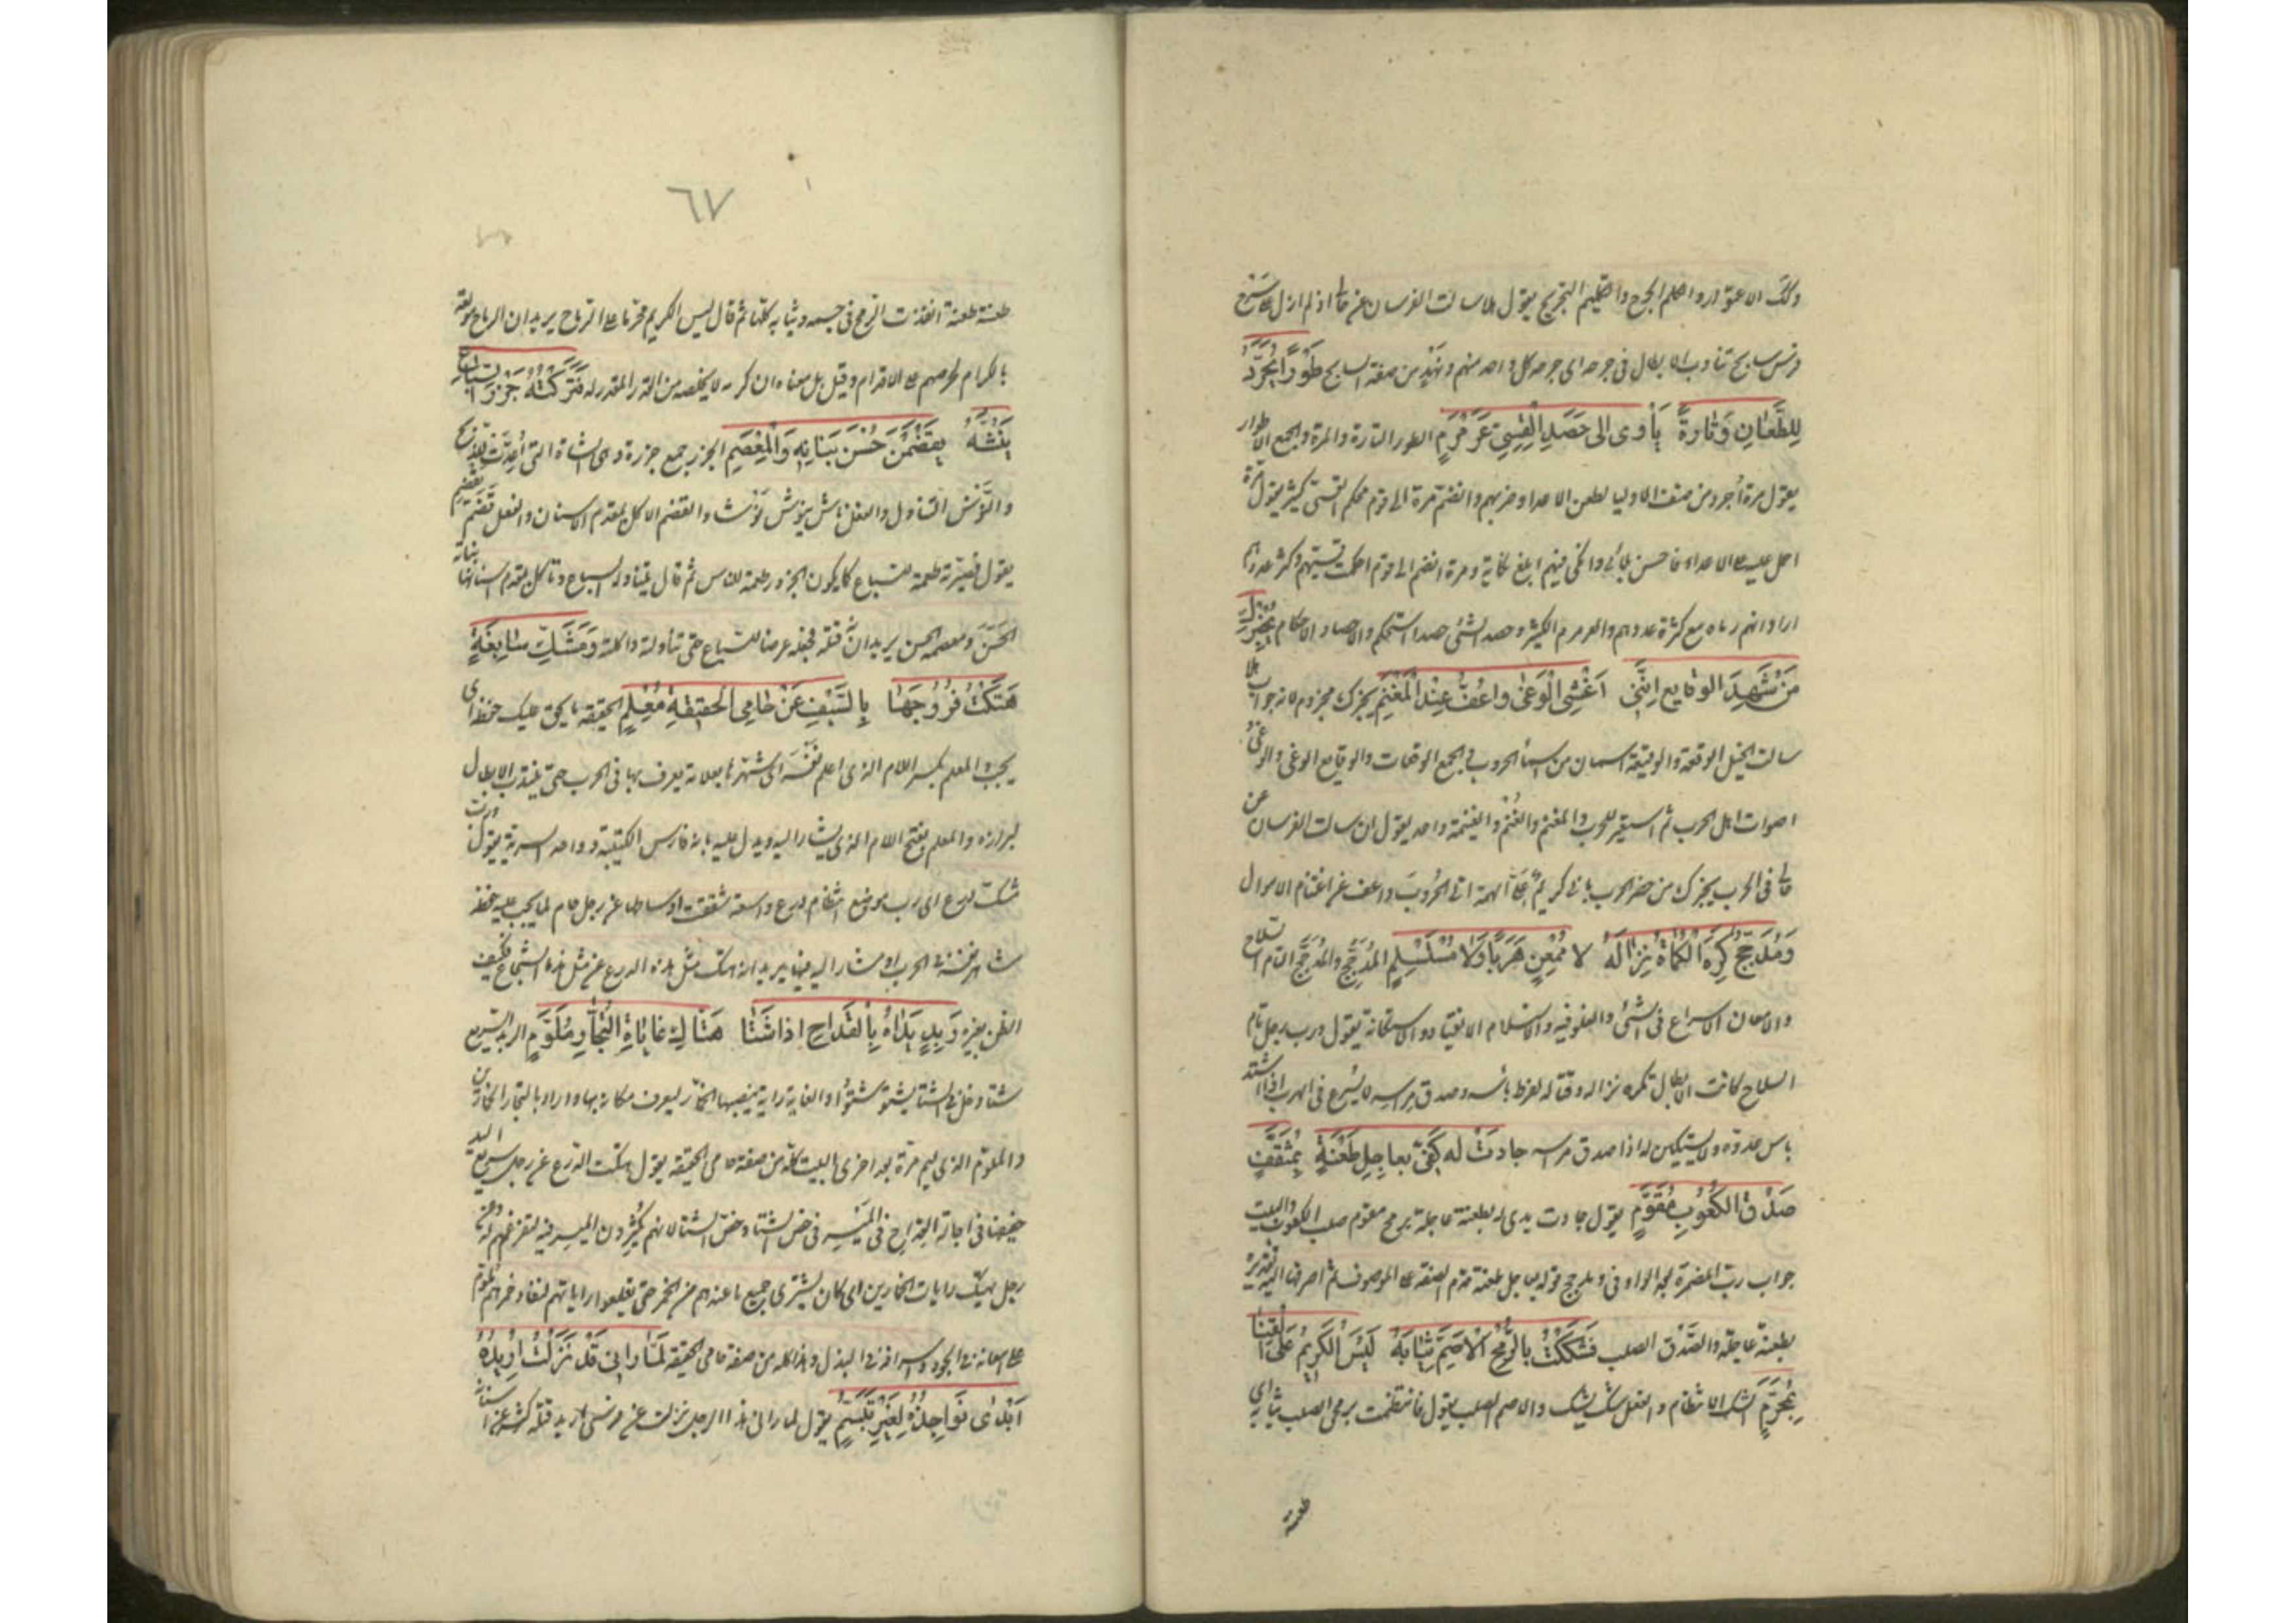 وكذلك الاعتوار والكلم الجرح والتكليم التجريح يقول هلا سالت الفرسان عن حالي اذ لم ازل على سرج
فرس سابح تناوب الابطال في جرحه اي جرحه كل واحد منهم ونهد من صفة السابح طَوْرًا يُجَرَّدُ
لِلطِّعَانِ وَتَارَةً يَأْوى الى حَصَدِ الْقِسِيِّ عَرَمْرَمِ الطور التارة والمرة والجمع الاطوار
يقول مرة أجرده من صف الاوليا لطعن الاعدا وضربهم وانضم مرة الى قوم محكم القسي كثير يقول مرة
احمل عليه على الاعداء فاحسن بلائي وانكى فيهم ابلغ نكاية ومرة انضم الى قوم احكمت قسيهم وكثر عددهم
اراد انهم رماه مع كثرة عددهم والعرمرم الكثير وحصد الشئ حصدا استحكم والاحصاد الاحكام يُخْبِرْكِ
مَنْ شَهِدَ الوقايع اِنَّنِي اَغْشَى الْوَغَى واعُفُّ عِنْدَ الْمَغْنَمِ يخبرك مجزوم لانه جواب هلا
سالت الخيل الوقعة والوقيعة اسمان من اسماء الحروب والجمع الوقعات والوقايع الوغى والوعى
اصوات اهل الحرب ثم استعير للحرب والمغنم والغنم والغنيمة واحد يقول ان سالت الفرسان عن
حالي في الحرب يخبرك من حضر الحرب باني كريم عالى الهمة اتى الحُرُوبَ واعف عن اغتنام الاموال
وَمُدَجَّجٍ كَرِهَ الْكُمَاةُ نِزَالَهُ لا مُمْعِنٍ هَرَبًا وَلا مُسْتَسْلِمِ المُدَجَّج والمُدَجِّج التام السلاح
والامعان الاسراع في الشئ والغلو فيه والاستسلام الانقياد والاستكانة يقول ورب رجل تام
السلاح كانت الابطال تكره نزاله وقتاله لفرط باسه وصدق مراسه لا يسرع في الهرب اذا اشتد
باس عدوه ولا يستكين له اذا صدق مراسه جادَتْ له كَفّى بعاجِلِ طَعْنَةٍ بِمُثَقَّفٍ
صَدْقِ الكُعُوبِ مُقَوَّمِ يقول جادت يدى له بطعنة عاجلة برمح مقوم صلب الكعوب والبيت
جواب رب المضمرة بعد الواو في ومدجج قوله بعاجل طعنة قدم الصفة على الموصوف ثم اضافها اليه تقديره
بطعنة عاجلة والصَّدْق الصلب فَشَكَكْتُ بالرُّمْحِ الْاَصَمِّ ثِيَابَهُ لَيْسَ الكَرِيمُ عَلَى القَنَا
بِمُحَرَّمِ الشك الانتظام والفعل شك يشك والاصم الصلب يقول فانتظمت برمحى الصلب ثيابه اى
طعنته
٦٧
طعنته طعنة انفذت الرمح في جسمه وثيابه كلها ثم قال ليس الكريم محرما على الرماح يريد ان الرماح مولعة
بالكرام لحرصهم على الاقدام وقيل بل معناه ان كرمه لا يخلصه من القدر المقدر له فَتَرَكْتُهُ جَزَرَ السِّبَاعِ
يَنُشْنَهُ يَقْضَمْنَ حُسْنَ بَنَانِهِ وَالْمِعْصَمِ الجزر جمع جزرة وهى الشاة التى أعِدّت للذبح
والنَّوْش التناول والفعل ناش ينوش نَوْشا والقضم الاكل بمقدم الاسنان والفعل قَضَمَ يقضم
يقول فصيرته طعمة للسباع كما يكون الجزور طعمة للناس ثم قال تتناوله السباع وتاكل بمقدم اسنانها بنانه
الحَسَن ومعصمه الحسن يريد انه قتله فجعله عرضا للسباع حتى تناولته واكلته وَمِشَكِّ سَابِغَةٍ
هَتَكْتُ فُرُوجَهَا بِالسَّيْفِ عَنْ حَامِى الْحَقِيقَةِ مُعْلِمِ الحقيقة ما يحق عليك حفظه اى
يجب والمعلم بكسر اللام الذى اعلم نفسَه اى شهرها بعلامة يعرف بها في الحرب حتى ينتدب الابطال
لبرازه والمعلم بفتح اللام الذى يشار اليه ويدل عليه بانه فارس الكتيبة وواحد السرية يقول ورب
مشك درع اى رب موضع انتظام درع واسعة شققت اوساطها عن رجل حام لما يجب عليه حفظه
شاهر نفسه في الحرب او مشار اليه فيها يريد انه هتك مثل هذه الدرع عن مثل هذا الشجاع فكيف
الظن بغيره رَبِذٍ يَدَاهُ بِالْقِدَاحِ اذا شَتَا هَتَّاكِ غَايَاتِ التِّجَارِ مُلَوَّمِ الربذ السريع
شتا دخل في الشتا يشتو شتوًا والغاية راية ينصبها الخمّار ليعرف مكانه بها واراد بالتجار الخمارين
والملوّم الذى ليم مرة بعد اخرى البيت كله من صفة حامى الحقيقة يقول هتكت الدرع عن رجل سريع اليد
خفيفها في اجالة القداح في المَيْسِر في فصل الشتا وخص الشتا لانهم يُكْثِرُون الميسر فيه لتفرغهم له وعن
رجل يهتك رايات الخمارين اى كان يشترى جميع ما عندهم من الخمر حتى يقلعوا راياتهم لنفاد خمرهم ملوّم
على امعانه في الجود واسرافه في البذل وهذا كله من صفة حامى الحقيقة لَمَّا رَآنى قَدْ نَزَلْتُ اُرِيدُهُ
اَبْدَى نَوَاجِذَهُ لِغَيْرِ تَبَسُّمِ يقول لما رانى هذا الرجل نزلت عن فرسى اريد قتله كشر عن اسنانه